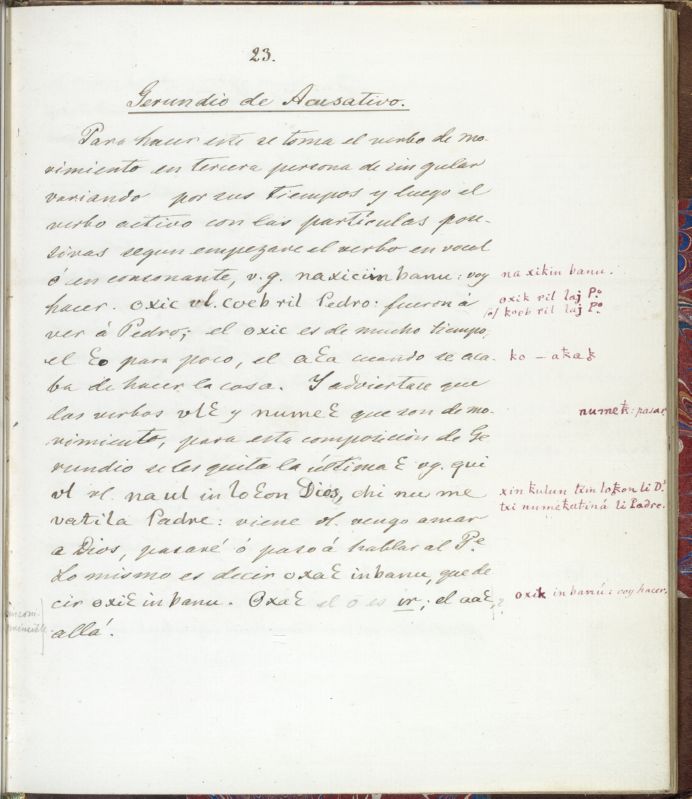 23.
Gerundio de Acusativo.
Para hacer este se toma el verbo de mo-
vimiento en tercera persona de singular
variando por sus tiempos y luego el
verbo activo con las partículas pose-
sivas segun empezare el verbo en vocal
ó en consonante, v.g. naxic inbanu: voy
hacer. oxic vl. coeb ril Pedro: fueron á
ver á Pedro; el oxic es de mucho tiempo,
el ꜫo para poco, el aꜫa cuando se aca-
ba de hacer la cosa. Y adviertase que
los verbos vlꜫ y numeꜫ que son de mo-
vimiento, para esta composición de Ge
rundio se les quita la última ꜫ vg. qui
vl vl. na ul in loꜫon Dios, chi nu me
vatila Padre: viene vl. vengo amar
a Dios, pasaré ó paso á hablar al Pe
Lo mismo es decir oxaꜫ inbanu, que de
cir oxiꜫ inbanu. Oxaꜫ el o es ir; el aaꜫ,
allá.
na xikin banu.
oxik ril laj Po
koob ril laj Po
ko – aꞣaꞣ
numeꞣ: pasar
xin ꞣulun txin loꞣon li Ds
txi numeꞣatiná li Padre.
oxik in banú: voy hacer.